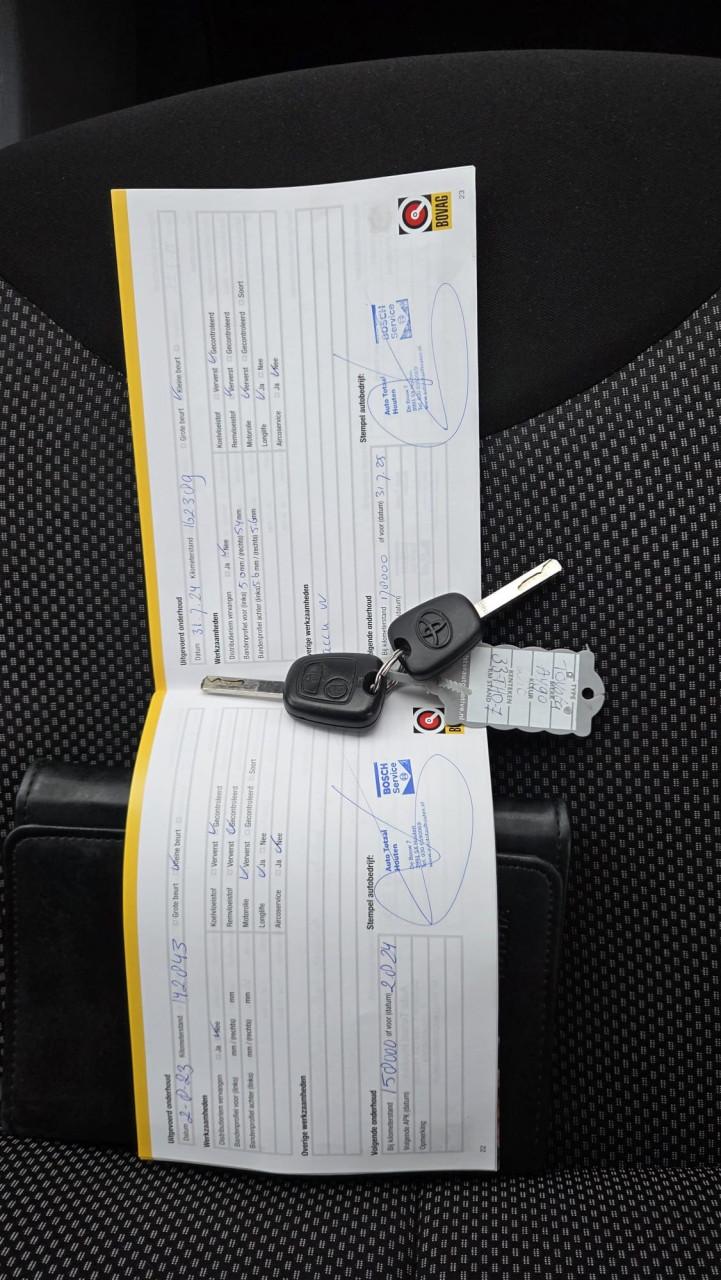 Uitgevoerd onderhoud
Kilometerstand 142043
☐ Grote beurt ☑ Kleine beurt ☐
Werkzaamheden
Distributieriem vervangen ☐ Ja ☑ Nee
Bandenprofiel voor (links) mm / (rechts) mm
Bandenprofiel achter (links) mm / (rechts) mm
Koelvloeistof ☐ Ververst ☑ Gecontroleerd
Remvloeistof ☐ Ververst ☑ Gecontroleerd
Motorolie ☑ Ververst ☐ Gecontroleerd ☐ Soort
Longlife ☑ Ja ☐ Nee
Aircoservice ☐ Ja ☑ Nee
Overige werkzaamheden
Volgende onderhoud
Bij kilometerstand 150000 of voor (datum) 2024
Volgende APK (datum)
Opmerking
Stempel autobedrijf:
Auto Totaal
Houten
De Bouw 7
BOSCH
Service
22
Uitgevoerd onderhoud
Datum 31.7.24 Kilometerstand 162309
☐ Grote beurt ☑ Kleine beurt ☐
Werkzaamheden
Distributieriem vervangen ☐ Ja ☑ Nee
Bandenprofiel voor (links) 5.0 mm / (rechts) 5.4 mm
Bandenprofiel achter (links) 5.6 mm / (rechts) 5.6 mm
Koelvloeistof ☐ Ververst ☑ Gecontroleerd
Remvloeistof ☑ Ververst ☐ Gecontroleerd
Motorolie ☑ Ververst ☐ Gecontroleerd ☐ Soort
Longlife ☑ Ja ☐ Nee
Aircoservice ☐ Ja ☑ Nee
erige werkzaamheden
accu vv
lgende onderhoud
Bij kilometerstand 170000 of voor (datum) 31.7.25
(datum)
Stempel autobedrijf:
Auto Totaal
Houten
De Bouw 7
BOSCH
Service
BOVAG
23
TYPE
MERK
Aygo
KLEUR
KENTEKEN
33-THD-7
KM STAND